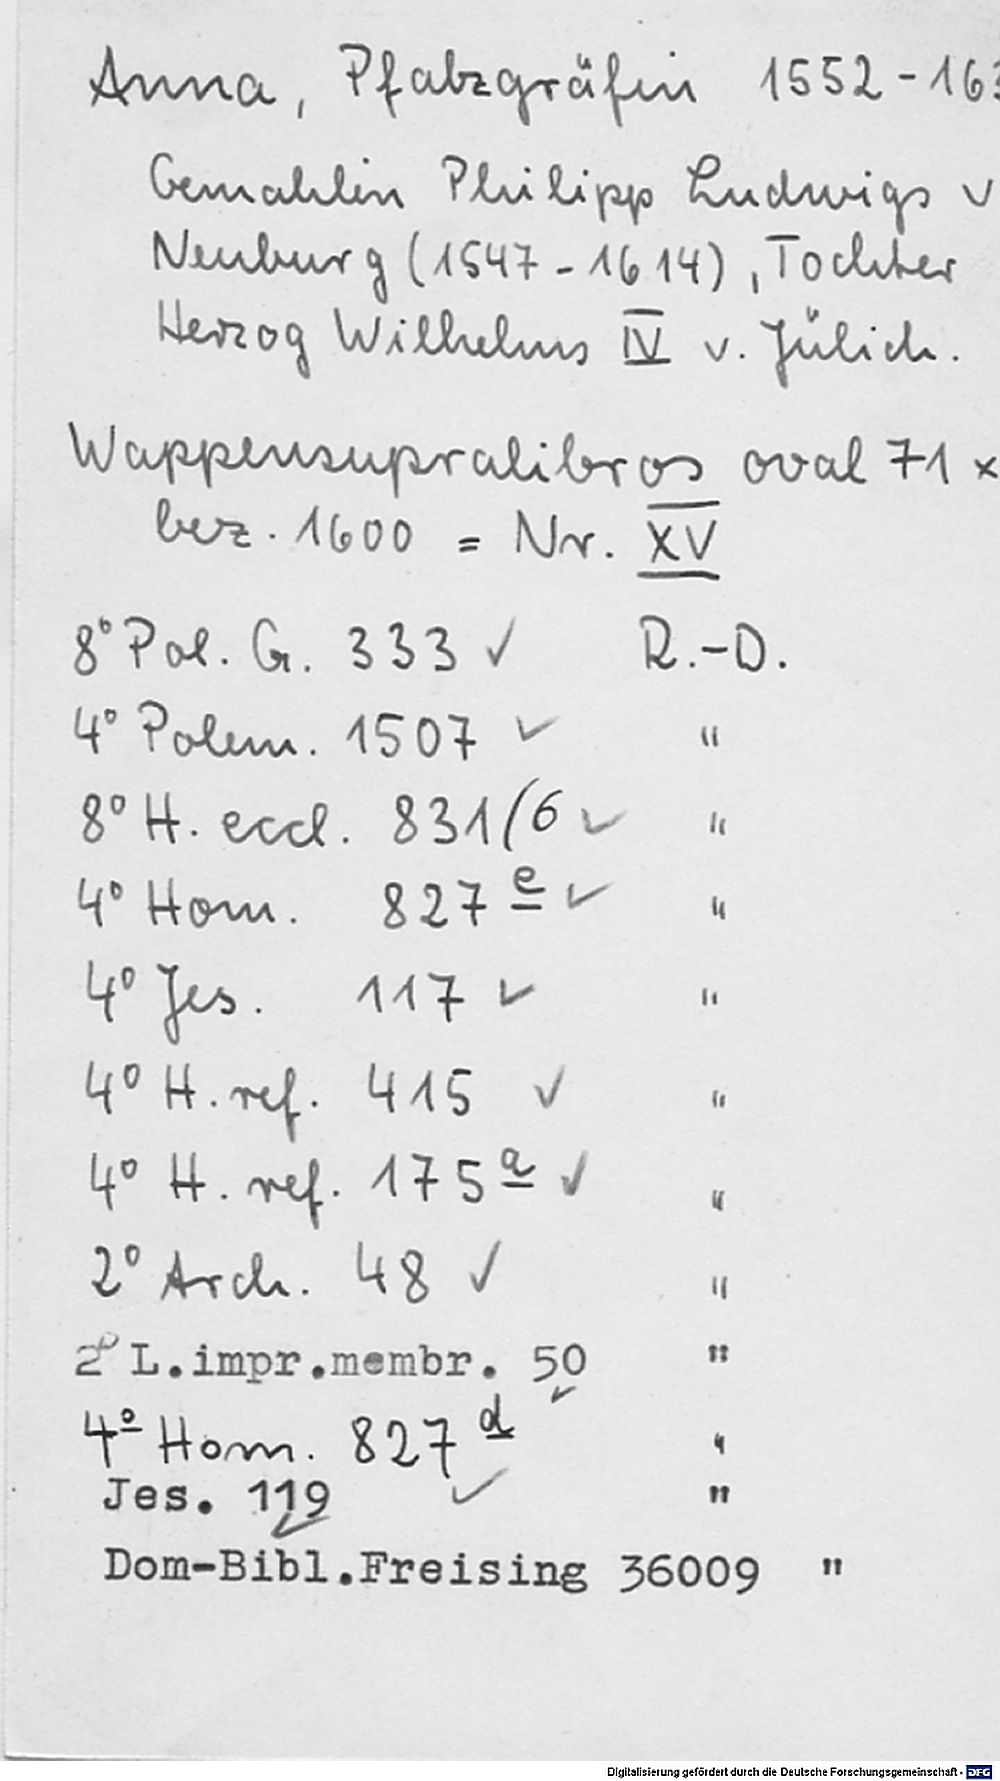 Anna, Pfalzgräfin 1552-163
Gemahlin Philipp Ludwigs v
Neuburg (1547-1614), Tochter
Herzog Wilhelms IV v. Jülich.
Wappensupralibros oval 71 x
bez. 1600 = Nr. XV
8° Pol. G. 333 ✓ R.-D.
4° Polem. 1507 ✓ "
8° H. eccl. 831/6 ✓ "
4° Hom. 827 e ✓ "
4° Jes. 117 ✓ "
4° H. ref. 415 ✓ "
4° H. ref. 175 a ✓ "
2° Arch. 48 ✓ "
2° L.impr.membr. 50 ✓ "
4° Hom. 827 d ✓ "
Jes. 119 ✓ "
Dom-Bibl.Freising 36009 "
Digitalisierung gefördert durch die Deutsche Forschungsgemeinschaft - DFG